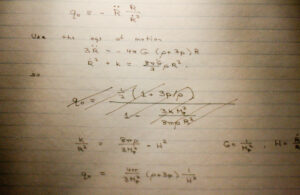 q₀ = - R̈ R / Ṙ²
Use the eqs of motion
3R̈ = -4πG (ρ+3p) R
Ṙ² + k = 8πG/3 ρR².
so
q₀ = ½ (1 + 3p/ρ) / 1 - 3k M_p² / 8πρ R²
k/R² = 8πρ/3M_p² - H² G = 1/M_p², H =
q₀ = 4π/3M_p² (ρ+3p) 1/H²